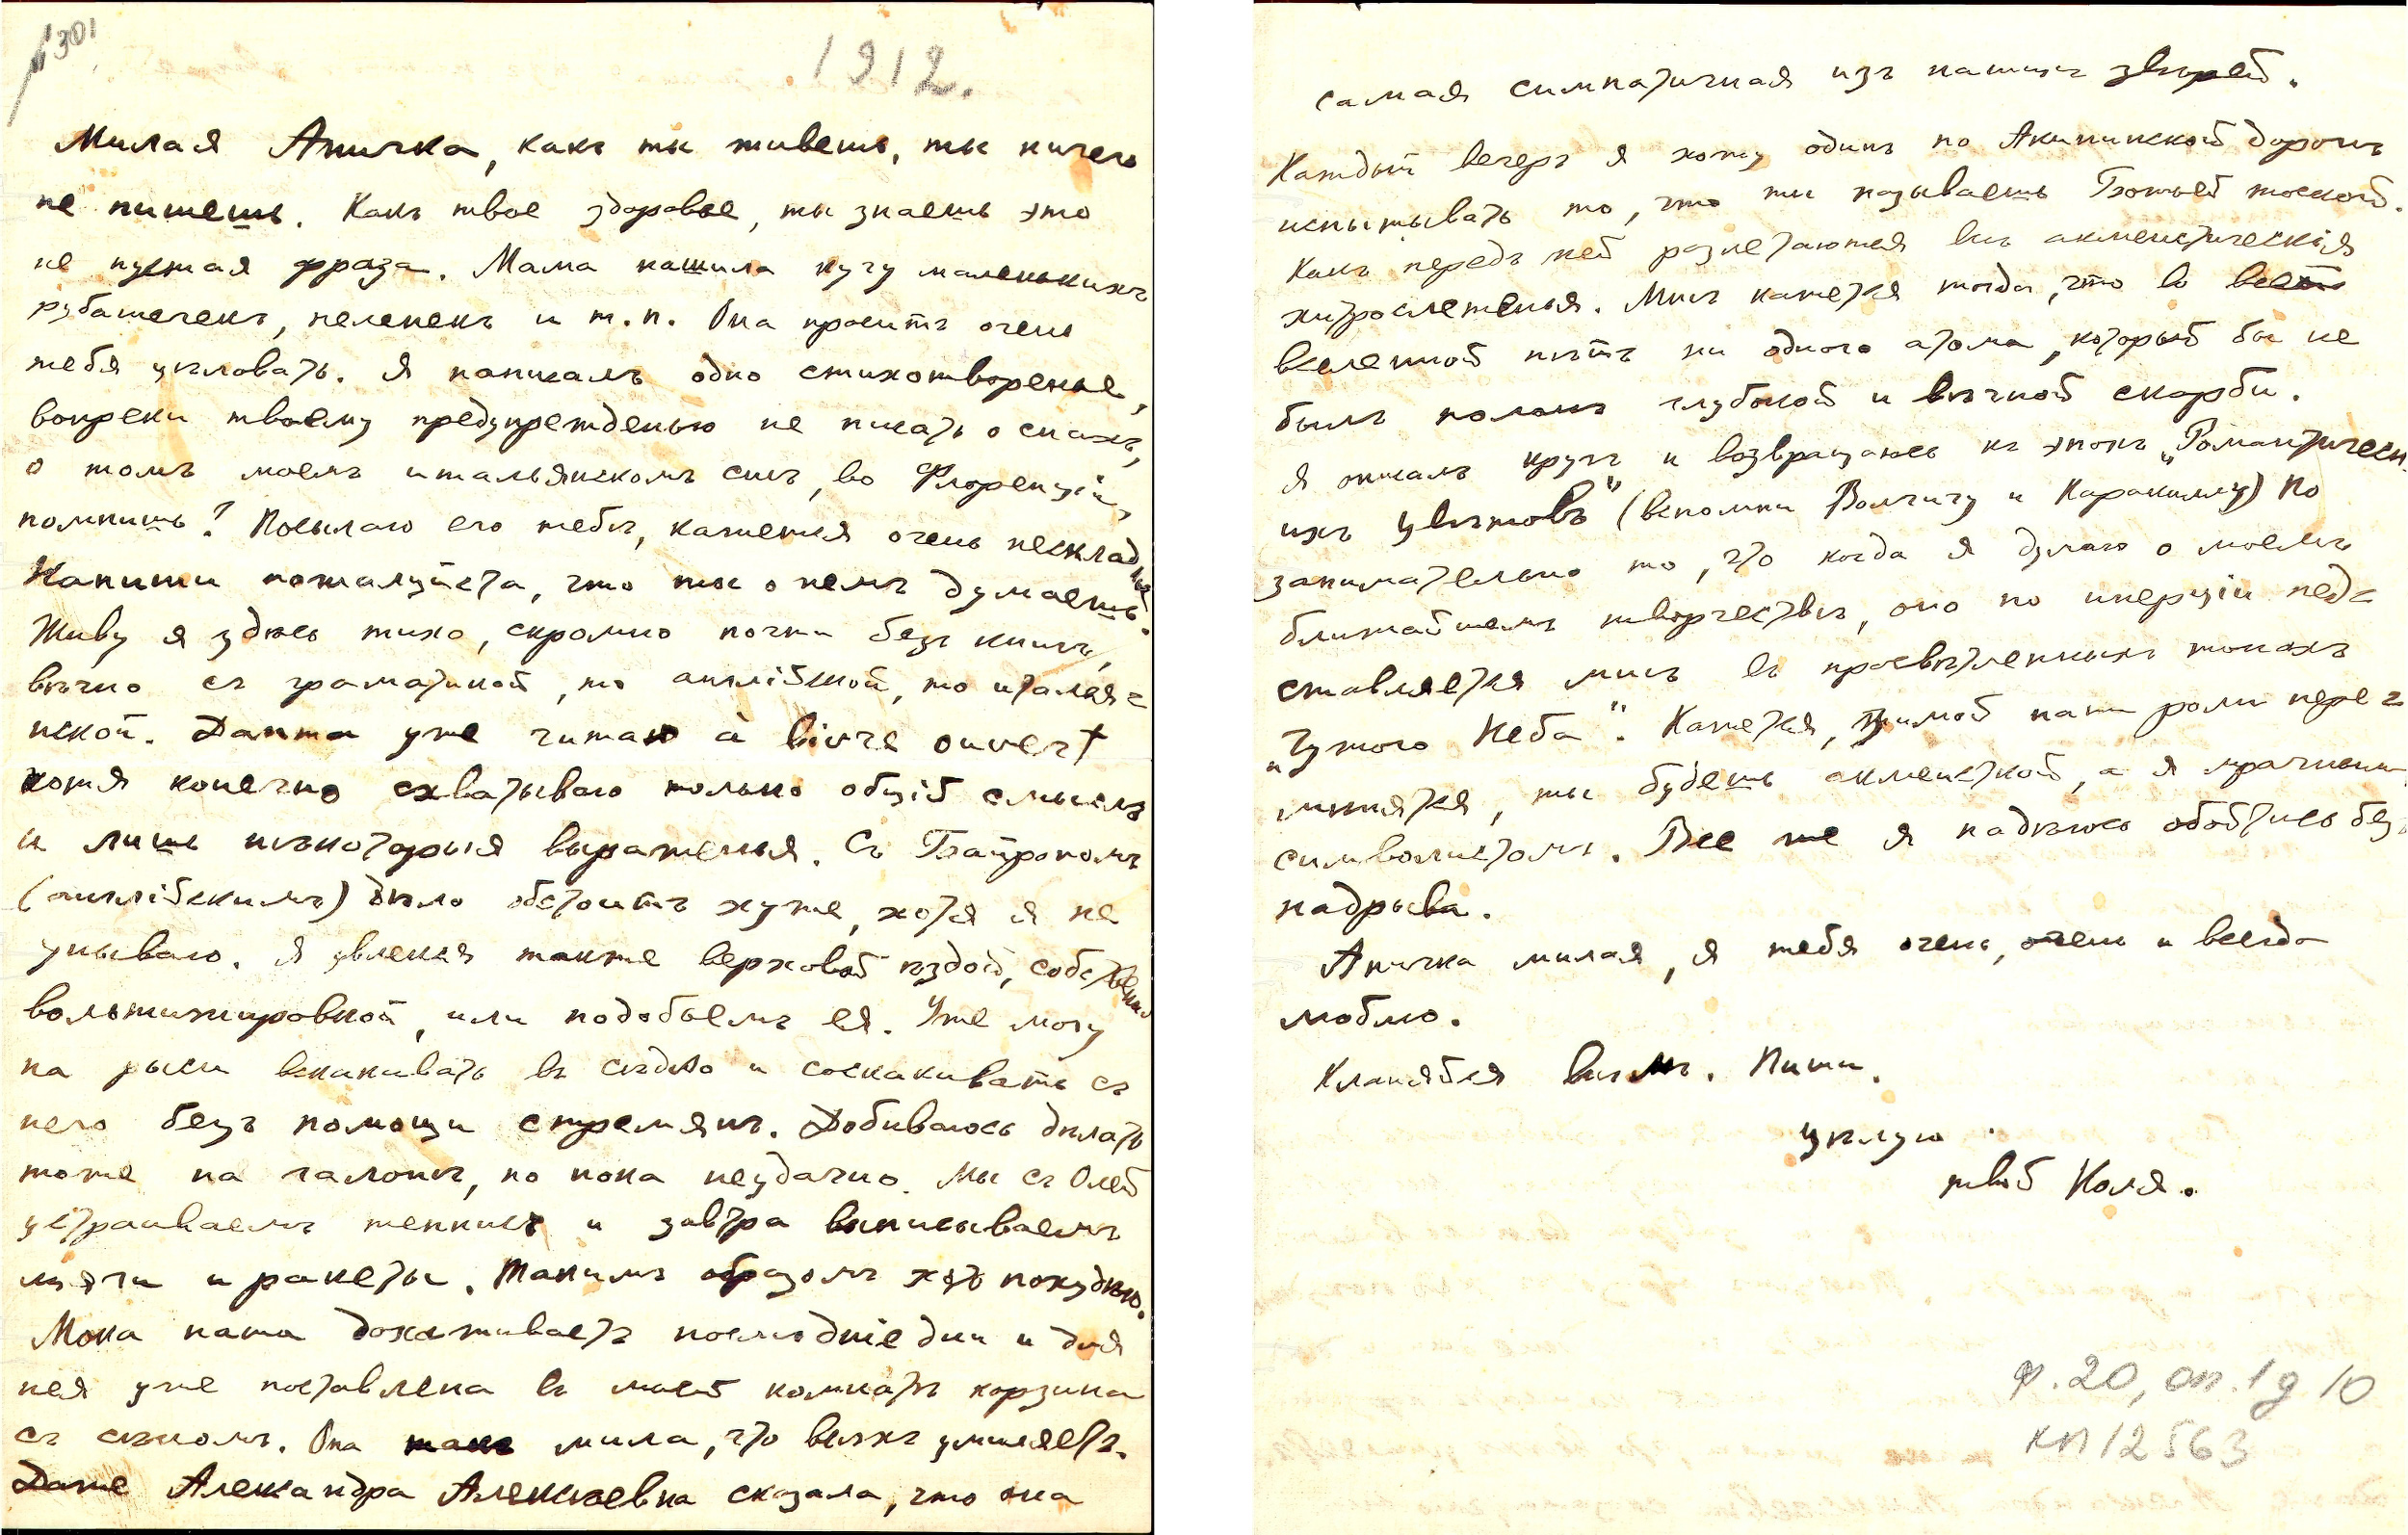 1301
1912.
Милая Аничка, какъ ты живешь, ты ничего
не пишешь. Какъ твое здоровье, ты знаешь это
не пустая фраза. Мама нашила кучу маленькихъ
рубашечекъ, пеленекъ и т.п. Она проситъ очень
тебя цѣловать. Я написалъ одно стихотворенье,
вопреки твоему предупрежденью не писать о снахъ,
о томъ моемъ итальянскомъ снѣ, во Флоренціи,
помнишь? Посылаю его тебѣ, кажется очень нескладное.
Напиши пожалуйста, что ты о немъ думаешь.
Живу я здѣсь тихо, скромно почти безъ книгъ,
вѣчно съ граматикой, то англійской, то италья=
нской. Данта уже читаю à livre ouvert
хотя конечно схватываю только общій смыслъ
и лишь нѣкоторыя выраженья. Съ Байрономъ
(англійскимъ) дѣло обстоитъ хуже, хотя я не
унываю. Я увлекся также верховой ѣздой, собственно
вольтижировкой, или подобьемъ ея. Уже могу
на рыси вскакивать въ сѣдло и соскакивать съ
него безъ помощи стремянъ. Добиваюсь дѣлать
тоже на галопѣ, но пока неудачно. Мы съ Олей
устраиваемъ теннисъ и завтра выписываемъ
мячи и ракеты. Такимъ образомъ хоть похудѣю.
Мока наша дохаживаетъ послѣдніе дни и для
нея уже поставлена въ моей комнатѣ корзина
съ сѣномъ. Она такъ мила, что всѣхъ умиляетъ.
Даже Александра Алексѣевна сказала, что она
самая симпатичная изъ нашихъ звѣрей.
Каждый вечеръ я хожу одинъ по Акининской дорогѣ
испытывать то, что ты называешь Божьей тоской.
Какъ передъ ней разлетаются всѣ акмеистическія
хитросплетенья. Мнѣ кажется тогда, что во всей
вселенной нѣтъ ни одного атома, который бы не
былъ полонъ глубокой и вѣчной скорби.
Я описалъ кругъ и возвращаюсь къ эпохѣ „Романтическ.
ихъ Цвѣтовъ" (вспомни Волчицу и Каракаллу) Но
занимательно то, что когда я думаю о моемъ
ближайшемъ творчествѣ, оно по инерціи пред=
ставляется мнѣ въ просвѣтленныхъ тонахъ
„Чужого Неба". Кажется, зимой наши роли пере=
мѣнятся, ты будешь акмеисткой, а я мрачнымъ
символистомъ. Все же я надѣюсь обойтись безъ
надрыва.
Аничка милая, я тебя очень, очень и всегда
люблю.
Кланяйся всѣмъ. Пиши.
Цѣлую
твой Коля.
ф.20, оп.1 д 10
КП 12563